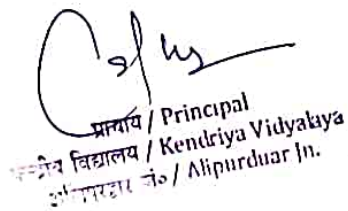 प्राचार्य / Principal
विद्यालय / Kendriya Vidyalaya
जं० / Alipurduar Jn.